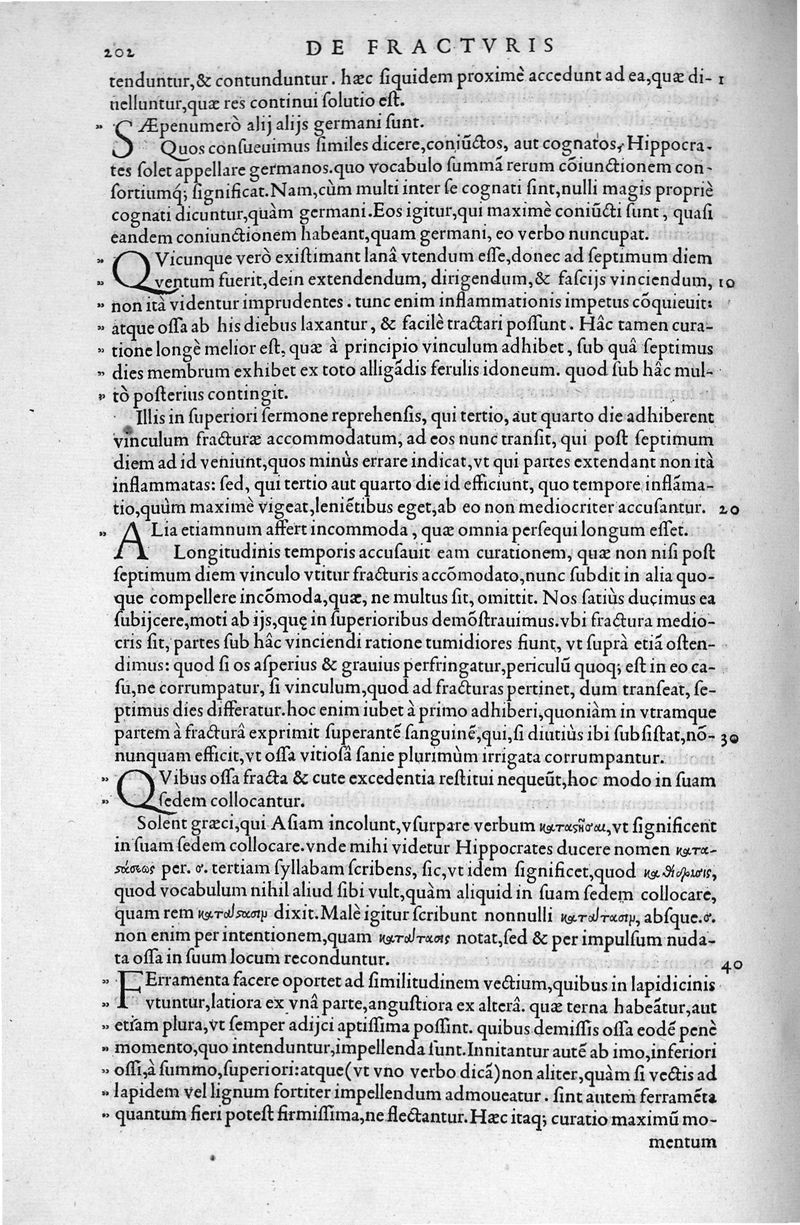 202 DE FRACTVRIS
tenduntur,& contunduntur. hæc ſiquidem proximè accedunt ad ea,quæ di- 1
uelluntur,quæ res continui ſolutio eſt.
„ SÆpenumerò alij alijs germani ſunt.
Quos conſueuimus ſimiles dicere,coniũctos, aut cognatos, Hippocra-
tes ſolet appellare germanos.quo vocabulo ſummã rerum cõiunctionem con-
ſortiumq́; ſignificat.Nam,cùm multi inter ſe cognati ſint,nulli magis propriè
cognati dicuntur,quàm germani.Eos igitur,qui maximè coniũcti ſunt, quaſi
eandem coniunctionem habeant,quam germani, eo verbo nuncupat.
„ QVicunque verò exiſtimant lanâ vtendum eſſe,donec ad ſeptimum diem
„ ventum fuerit,dein extendendum, dirigendum,& faſcijs vinciendum, 10
„ non ità videntur imprudentes. tunc enim inflammationis impetus cõquieuit:
„ atque oſſa ab his diebus laxantur, & facilè tractari poſſunt. Hâc tamen cura-
„ tione longè melior eſt, quæ à principio vinculum adhibet, ſub quâ ſeptimus
„ dies membrum exhibet ex toto alligãdis ferulis idoneum. quod ſub hâc mul-
„ tò poſterius contingit.
Illis in ſuperiori ſermone reprehenſis, qui tertio, aut quarto die adhiberent
vinculum fracturæ accommodatum, ad eos nunc tranſit, qui poſt ſeptimum
diem ad id veniunt,quos minùs errare indicat,vt qui partes extendant non ità
inflammatas: ſed, qui tertio aut quarto die id efficiunt, quo tempore inflãma-
tio,quùm maximè vigeat,leniẽtibus eget,ab eo non mediocriter accuſantur. 20
„ ALia etiamnum affert incommoda, quæ omnia perſequi longum eſſet.
Longitudinis temporis accuſauit eam curationem, quæ non niſi poſt
ſeptimum diem vinculo vtitur fracturis accõmodato,nunc ſubdit in alia quo-
que compellere incõmoda,quæ, ne multus ſit, omittit. Nos ſatiùs ducimus ea
ſubijcere,moti ab ijs,quę in ſuperioribus demõſtrauimus.vbi fractura medio-
cris ſit, partes ſub hâc vinciendi ratione tumidiores fiunt, vt ſuprà etiã oſten-
dimus: quod ſi os aſperius & grauius perfringatur,periculũ quoq; eſt in eo ca-
ſu,ne corrumpatur, ſi vinculum,quod ad fracturas pertinet, dum tranſeat, ſe-
ptimus dies differatur.hoc enim iubet à primo adhiberi,quoniàm in vtramque
partem à fracturâ exprimit ſuperantẽ ſanguinẽ,qui,ſi diutiùs ibi ſubſiſtat,nõ- 30
nunquam efficit,vt oſſa vitioſâ ſanie plurimùm irrigata corrumpantur.
„ QVibus oſſa fracta & cute excedentia reſtitui nequeũt,hoc modo in ſuam
„ ſedem collocantur.
Solent græci,qui Aſiam incolunt,vſurpare verbum καταστῆσαι,vt ſignificent
in ſuam ſedem collocare.vnde mihi videtur Hippocrates ducere nomen κατα-
στάσεως per. σ. tertiam ſyllabam ſcribens, ſic,vt idem ſignificet,quod
quod vocabulum nihil aliud ſibi vult,quàm aliquid in ſuam ſedem collocare,
quam rem dixit.Malè igitur ſcribunt nonnulli abſque.σ.
non enim per intentionem,quam notat,ſed & per impulſum nuda-
ta oſſa in ſuum locum reconduntur. 40
„ FErramenta facere oportet ad ſimilitudinem vectium,quibus in lapidicinis
„ vtuntur,latiora ex vnâ parte,anguſtiora ex alterâ. quæ terna habeãtur,aut
„ etiam plura,vt ſemper adijci aptiſſima poſſint. quibus demiſſis oſſa eodẽ penè
„ momento,quo intenduntur,impellenda ſunt.Innitantur autẽ ab imo,inferiori
„ oſſi,à ſummo,ſuperiori:atque(vt vno verbo dicã)non aliter,quàm ſi vectis ad
„ lapidem vel lignum fortiter impellendum admoueatur. ſint autem ferramẽta
„ quantum fieri poteſt firmiſſima,ne flectantur.Hæc itaq; curatio maximũ mo-
mentum